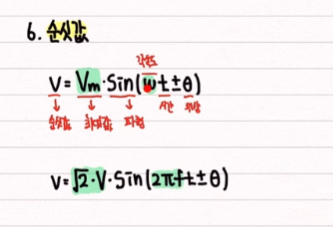 6. 순싯값
각속도
V = Vm·Sin(wt±θ)
순싯값 최댓값 파형 시간 위상
V = √2·V·Sin(2πft±θ)